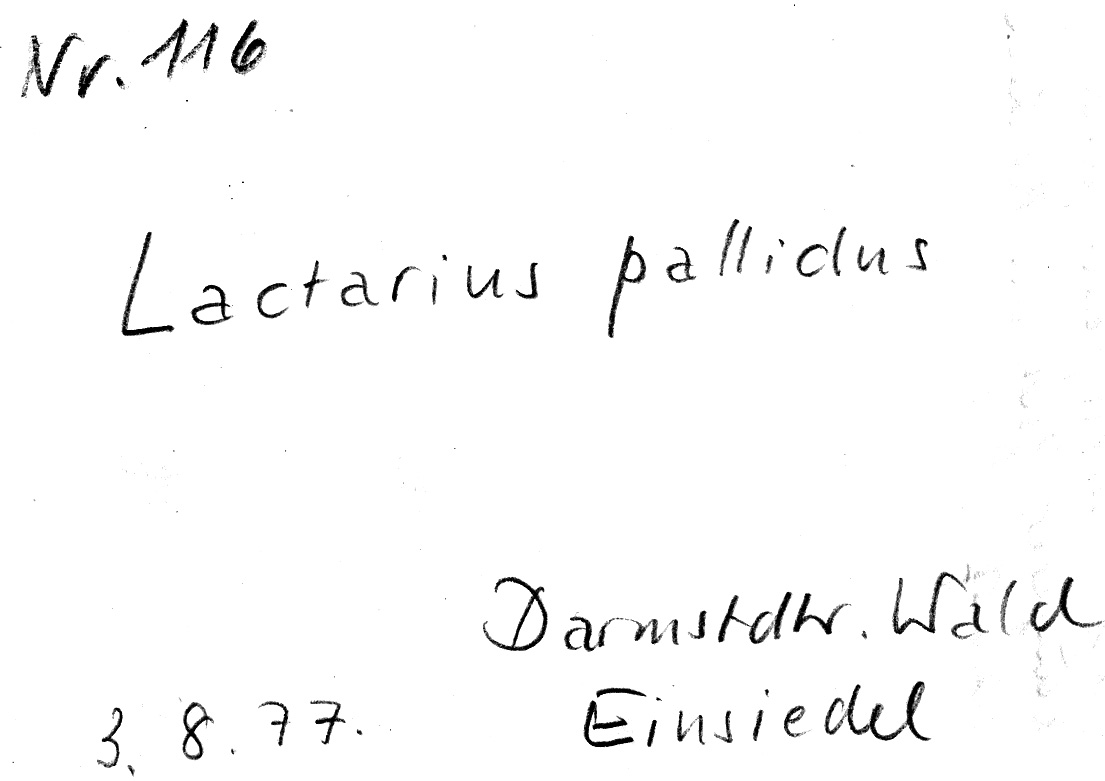 Nr. 116
Lactarius pallidus
Darmstdtr. Wald
3. 8. 77. Einsiedel